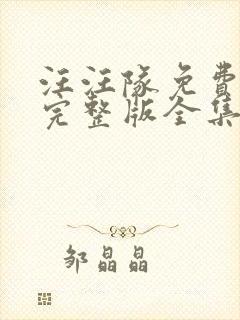 汪汪隊免費
完整版全集
邹晶晶